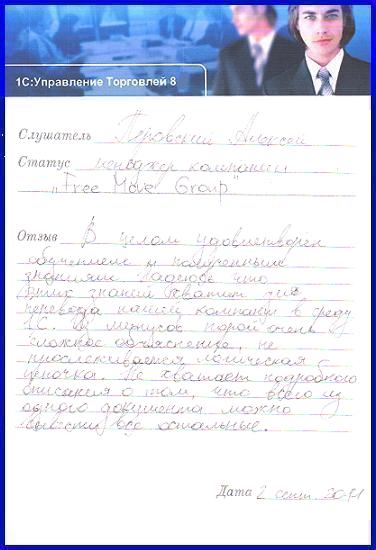 1С:Управление Торговлей 8
Слушатель Перовский Алексей
Статус менеджер компании
"Free Move Group"
Отзыв В целом удовлетворен
обучением и полученными
знаниями. Надеюсь что
этих знаний хватит для
перевода нашей компании в среду
1С. Из минусов порой очень
сложное объяснение, не
прослеживается логическая
цепочка. Не хватает подробного
описания о том, что всего из
одного документа можно
вывести все остальные.
Дата 2 сент. 2011